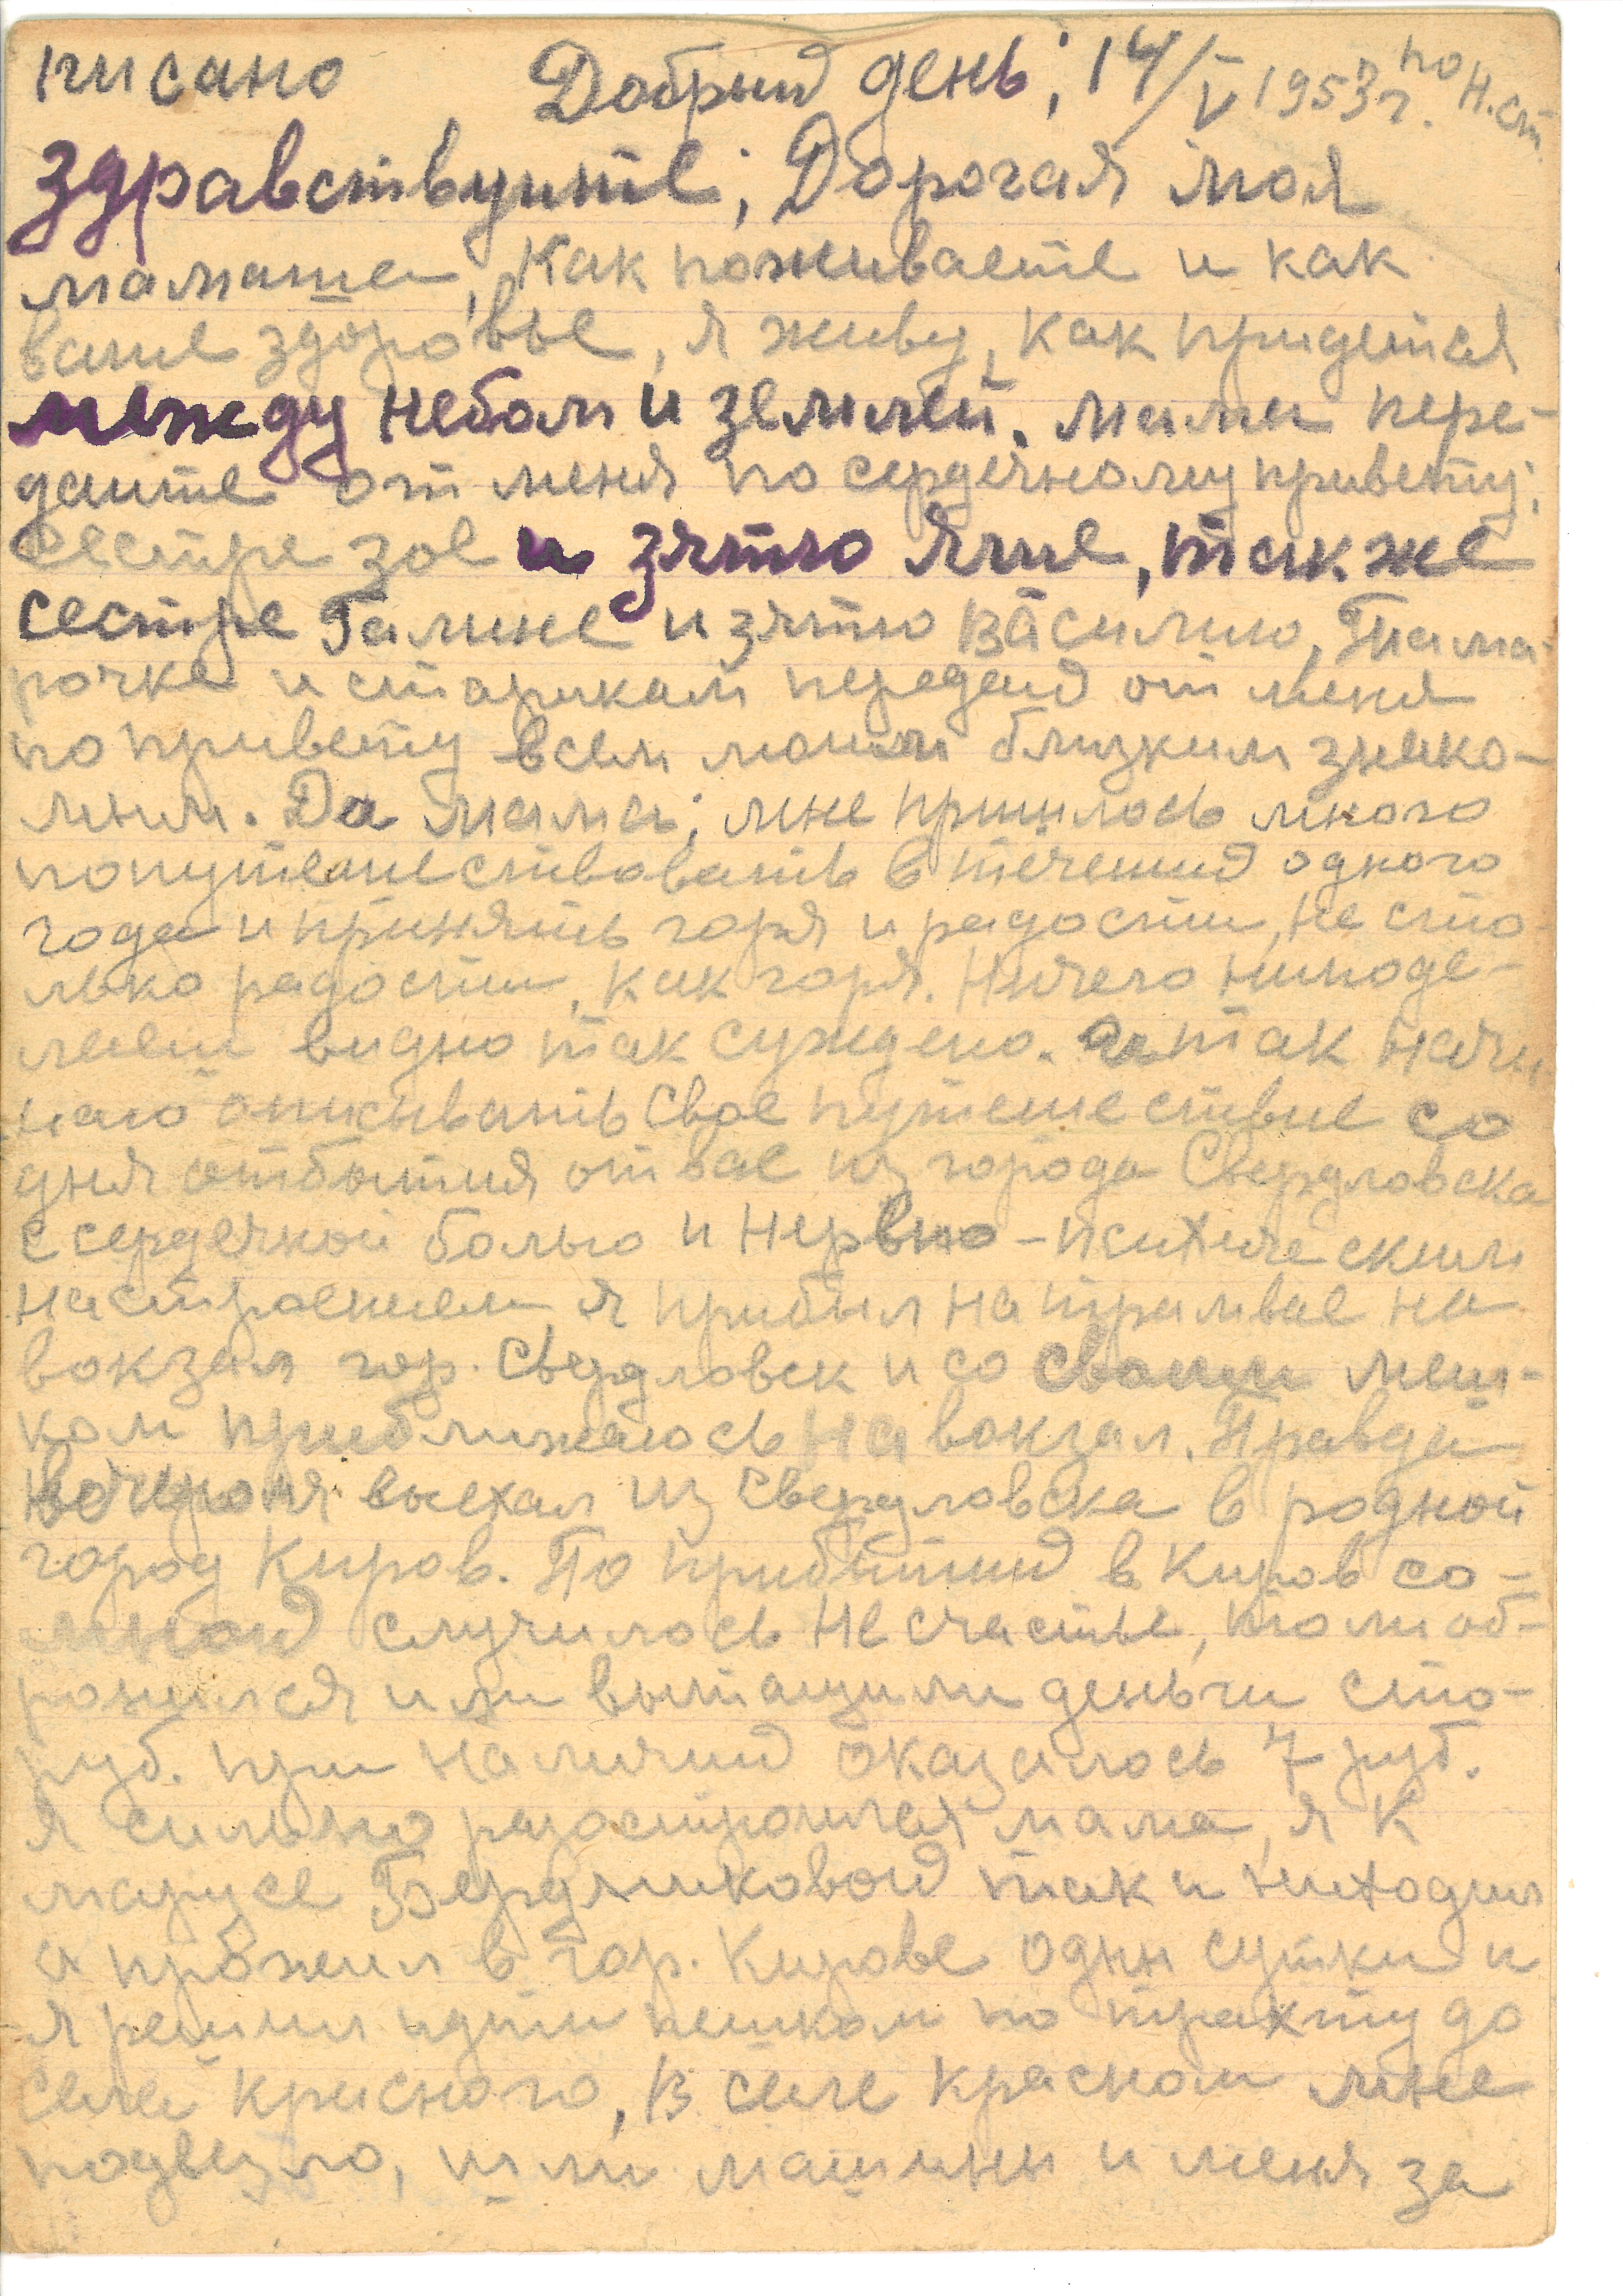 писано Добрый день; 14/V 1953 г. по Н. ст.
Здравствуйте; Дорогая моя
мамаша, Как поживаете и как
ваше здоровье, я живу, как придется
между небом и землей. мама пере-
дайте от меня по сердечному привету;
сестре Зое и зятю Яше, также
сестре Галине и зятю Василию, Тама-
рочке и старикам передай от меня
по привету всем моим близким знако-
мым. Да мама; мне пришлось много
попутешествовать в течений одного
года и принять горя и радости, не сто-
лько радости, как горя. Ничего ниподе-
лаеш видно так суждено. а так начи
наю описывать свое путешествие со
дня отбытия от вас из города Свердловска
с сердечной болью и нервно-психическим
настроением, я прибыл на трамвае на
вокзал гор. Свердловск и со своим меш-
ком приближаюсь на вокзал. Правда
вечером я выехал из Свердловска в родной
город Киров. По прибытий в Киров со-
мной случилось несчастье, то ли об-
ронился или вытащили деньги сто-
руб. при наличий оказалось 7 руб.
Я сильно разостроился мама, я к
марусе Бердниковой так и ниходил
а прожил в гор. Кирове одни сутки и
я решил идти пешком по трахту до
села Красного, в селе Красном мне
подвезло, шли машины и меня за